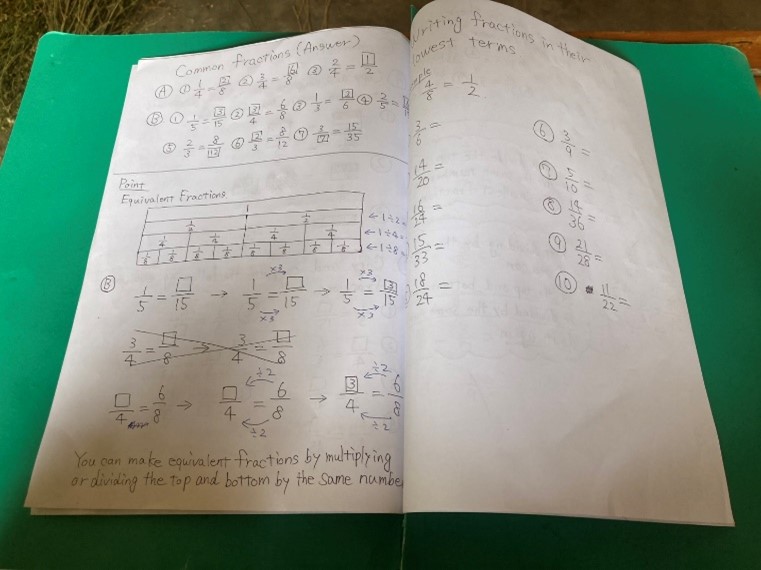 Common fractions (Answer)
Ⓐ ① 1/4 = 2/8 ② 3/4 = 6/8 ③ 2/4 = 1/2
Ⓑ ① 1/5 = 3/15 ② 3/4 = 6/8 ③ 1/3 = 2/6 ④ 2/5 =
⑤ 2/3 = 8/12 ⑥ 2/3 = 8/12 ⑦ 3/7 = 15/35
Point
Equivalent Fractions
1
1/2 1/2 ← 1÷2
1/4 1/4 1/4 1/4 ← 1÷4
1/8 1/8 1/8 1/8 1/8 1/8 1/8 1/8 ← 1÷8
Ⓑ 1/5 = □/15 → ×3 1/5 = □/15 ×3 → ×3 1/5 = 3/15 ×3
3/4 = □/8 → 3/4 = □/8
□/4 = 6/8 → ÷2 □/4 = 6/8 ÷2 → ÷2 3/4 = 6/8 ÷2
You can make equivalent fractions by multiplying
or dividing the top and bottom by the same number
Writing fractions in their
lowest terms
4/8 = 1/2
3/6 =
14/20 =
16/24 =
15/33 =
18/24 =
⑥ 3/9 =
⑦ 5/10 =
⑧ 14/36 =
⑨ 21/28 =
⑩ 11/22 =